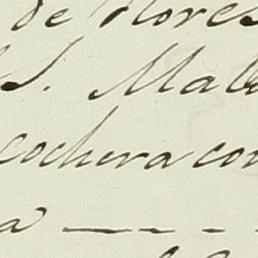 de Flores
S. Mab
cochera con
a